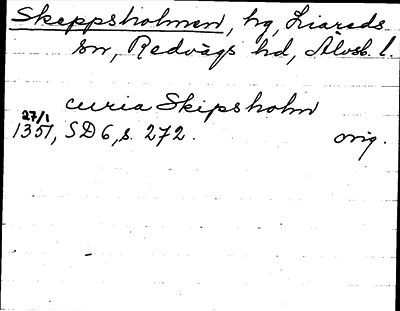 Skeppsholmen, hg, Liareds
sn, Redvägs hd, Älvsb. l.
curia Skipsholm
27/1
1351, SD 6, s. 272. orig.